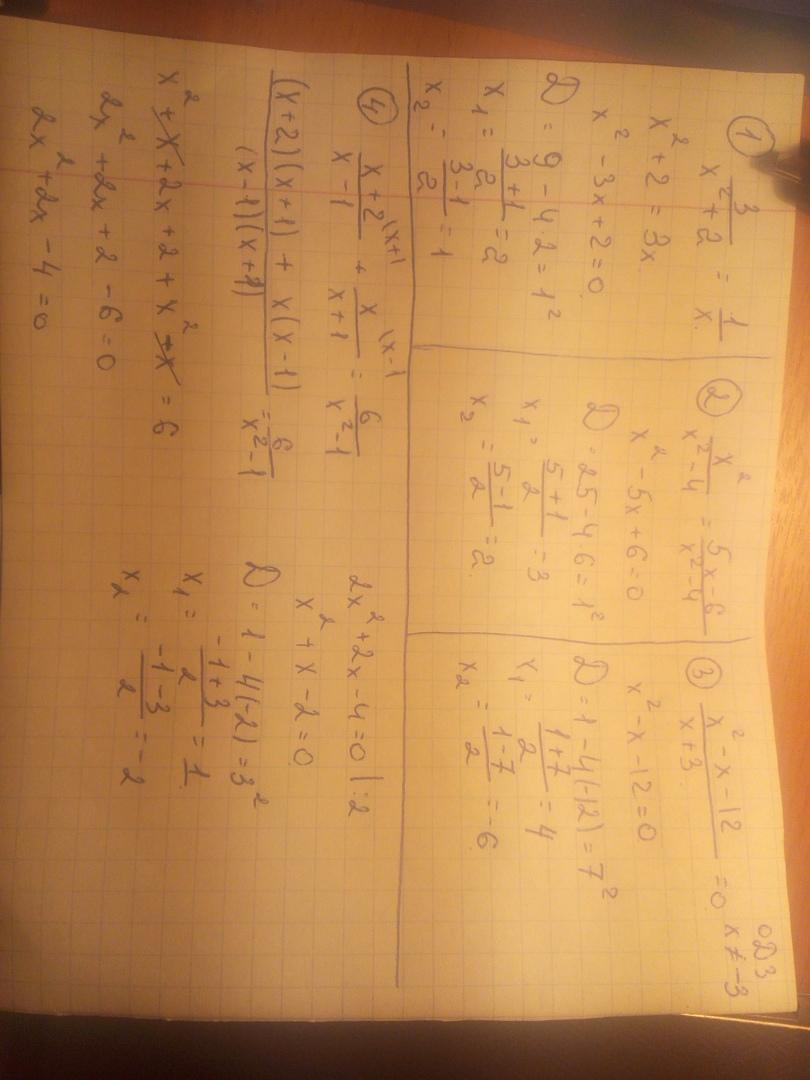 ① 3/(x²+2) = 1/x
x²+2 = 3x
x² - 3x + 2 = 0
D = 9 - 4·2 = 1²
x₁ = (3+1)/2 = 2
x₂ = (3-1)/2 = 1
② x²/(x²-4) = (5x-6)/(x²-4)
x² - 5x + 6 = 0
D = 25 - 4·6 = 1²
x₁ = (5+1)/2 = 3
x₂ = (5-1)/2 = 2
③ (x² - x - 12)/(x+3) = 0
ОДЗ
x ≠ -3
x² - x - 12 = 0
D = 1 - 4(-12) = 7²
x₁ = (1+7)/2 = 4
x₂ = (1-7)/2 = -6
④ (x+2)/(x-1) \(x+1 + x/(x+1) \(x-1 = 6/(x²-1)
((x+2)(x+1) + x(x-1))/((x-1)(x+1)) = 6/(x²-1)
x² + x + 2x + 2 + x² + x = 6
2x² + 2x + 2 - 6 = 0
2x² + 2x - 4 = 0
2x² + 2x - 4 = 0 |:2
x² + x - 2 = 0
D = 1 - 4(-2) = 3²
x₁ = (-1+3)/2 = 1
x₂ = (-1-3)/2 = -2